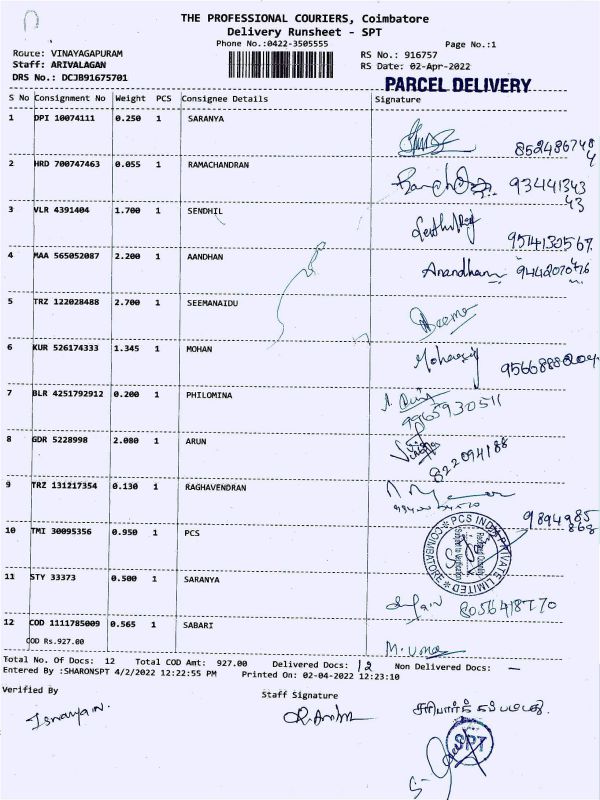 THE PROFESSIONAL COURIERS, Coimbatore
Delivery Runsheet - SPT
Phone No.:0422-3505555
Page No.:1
Route: VINAYAGAPURAM
RS No.: 916757
Staff: ARIVALAGAN
RS Date: 02-Apr-2022
DRS No.: DCJB91675701
PARCEL DELIVERY
S No Consignment No Weight PCS Consignee Details Signature
1 DPI 10074111 0.250 1 SARANYA
2 HRD 700747463 0.055 1 RAMACHANDRAN 93441343
43
3 VLR 4391404 1.700 1 SENDHIL 9514130567
4 MAA 565052087 2.200 1 AANDHAN Anandham
5 TRZ 122028488 2.700 1 SEEMANAIDU
6 KUR 526174333 1.345 1 MOHAN
7 BLR 4251792912 0.200 1 PHILOMINA
9965930511
8 GDR 5228998 2.080 1 ARUN
9 TRZ 131217354 0.130 1 RAGHAVENDRAN
10 TMI 30095356 0.950 1 PCS 9894985
868
PCS INDIA PRIVATE LIMITED
COIMBATORE
11 STY 33373 0.500 1 SARANYA
8056418770
12 COD 1111785009 0.565 1 SABARI
COD Rs.927.00
M. Uma
Total No. Of Docs: 12 Total COD Amt: 927.00 Delivered Docs: 12 Non Delivered Docs: —
Entered By :SHARONSPT 4/2/2022 12:22:55 PM Printed On: 02-04-2022 12:23:10
Verified By
Staff Signature
SPT